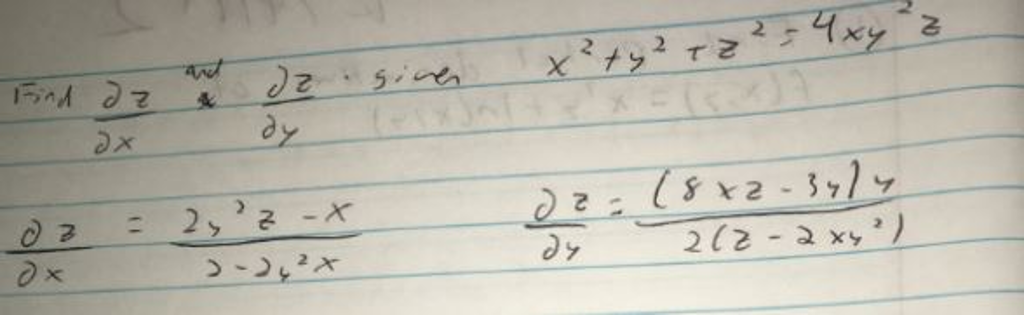 Find ∂z/∂x and ∂z/∂y · given x² + y² + z² = 4xy²z
∂z/∂x = (2y²z - x)/(2-2y²x) ∂z/∂y = ((8xz - 3y)y)/(2(z - 2xy²))